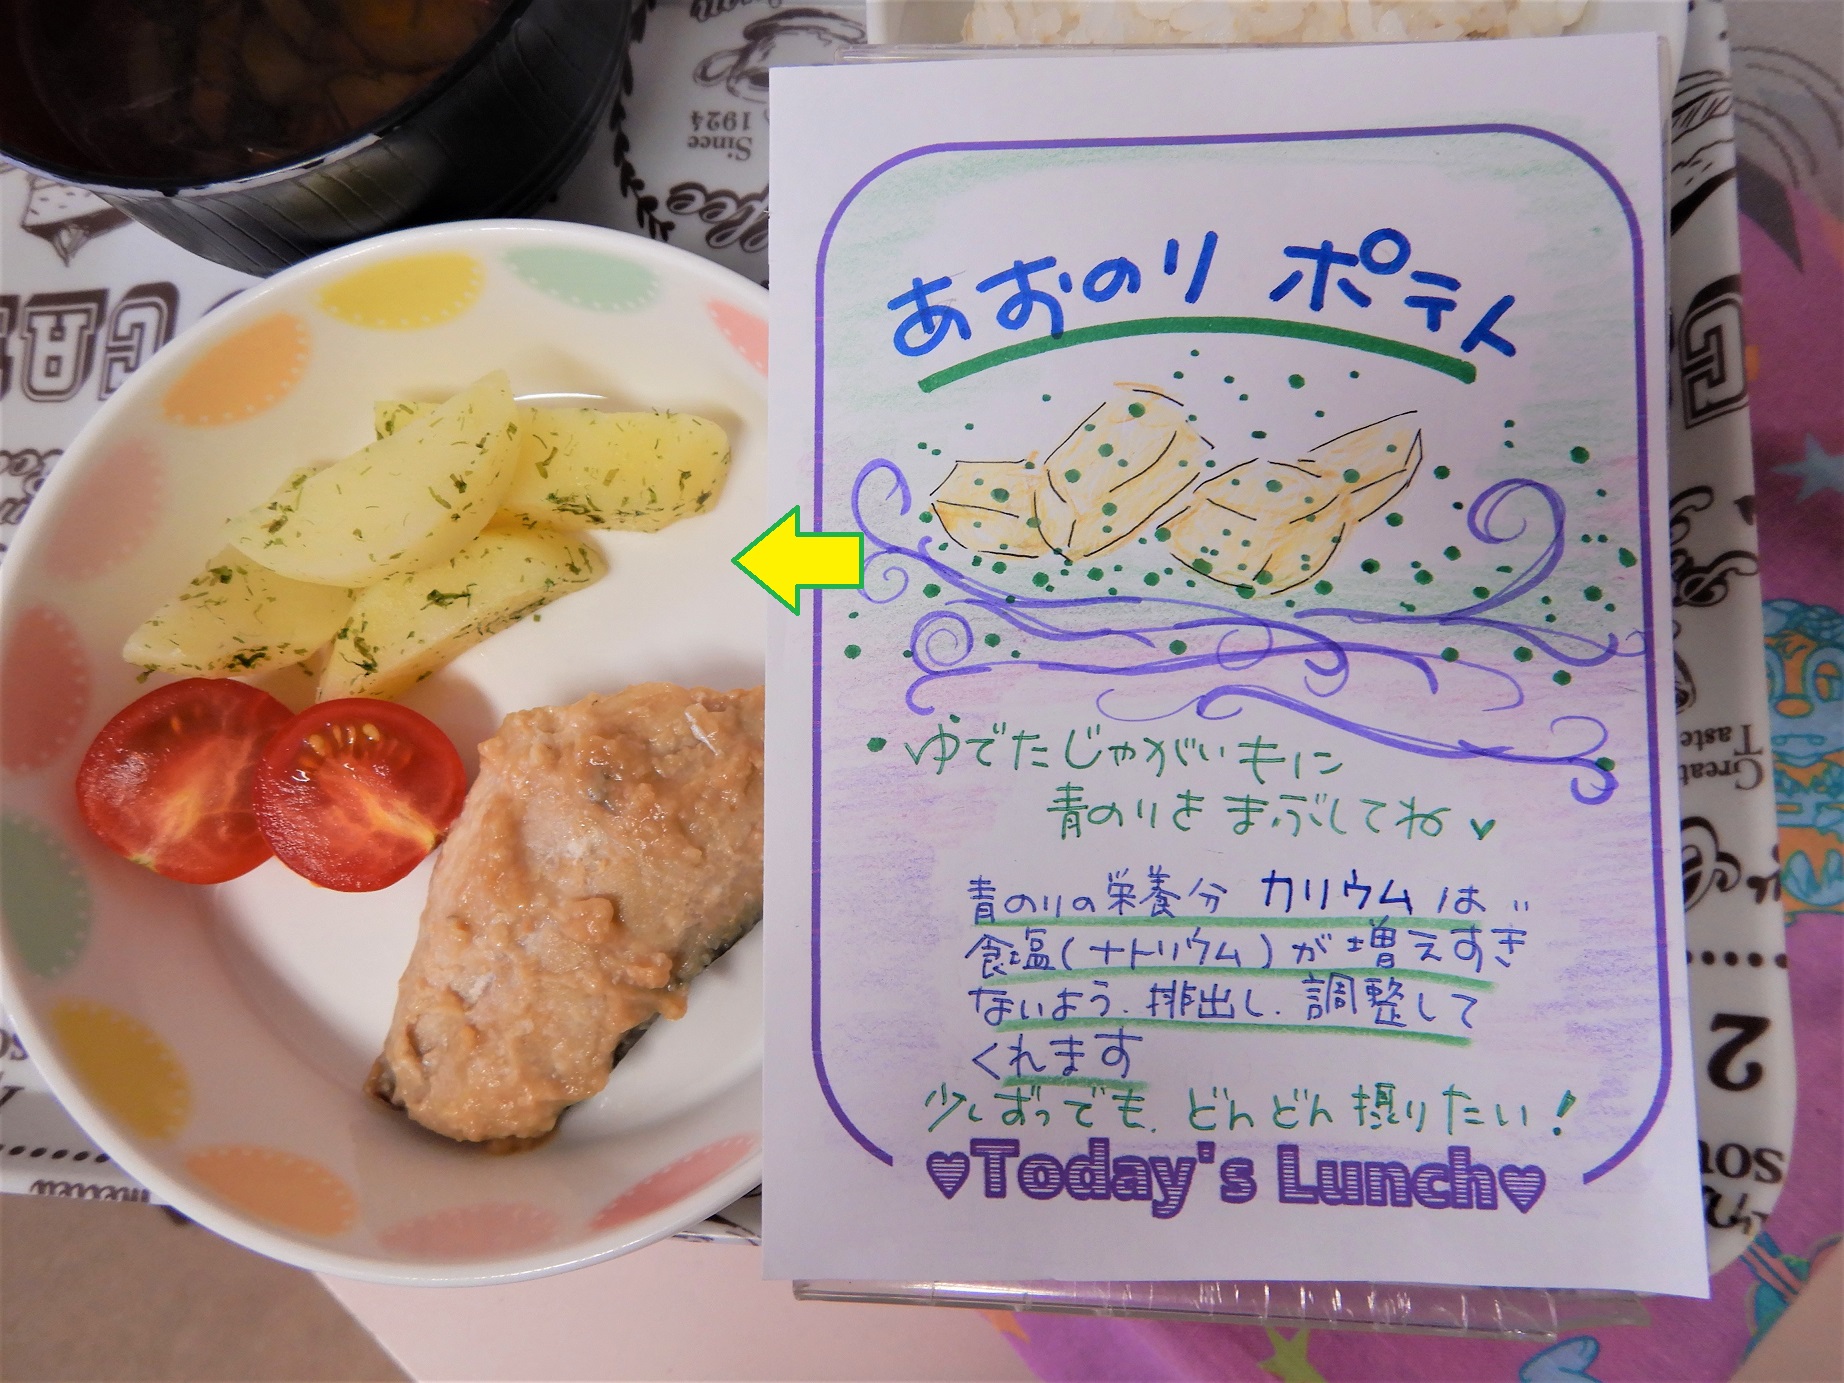 あおのり ポテト
• ゆでたじゃがいもに
青のりを まぶしてね
青のりの栄養分 カリウム は‥
食塩(ナトリウム)が増えすぎ
ないよう、排出し、調整して
くれます
少しずつでも、どんどん摂りたい!
♥Today's Lunch♥
Since
1924
Coffee
Great
Taste
2